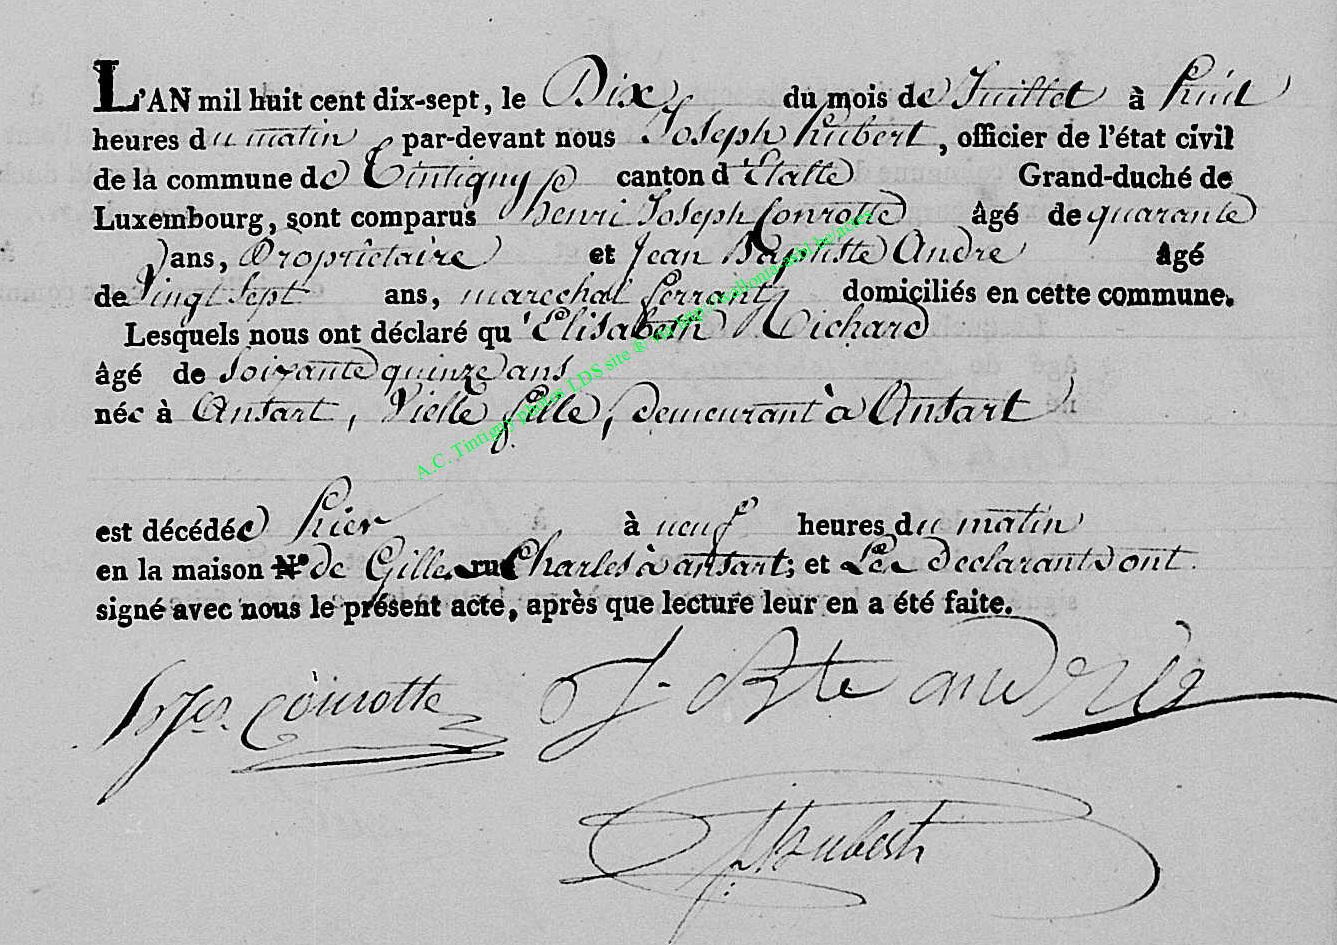 L'AN mil huit cent dix-sept, le Dix du mois de Juillet à huit
heures du matin par-devant nous Joseph hubert, officier de l'état civil
de la commune de Tintigny canton d'Etalle Grand-duché de
Luxembourg, sont comparus henri Joseph Conrotte âgé de quarante
ans, Propriètaire et Jean Baptiste Andre âgé
de Vingt Sept ans, marechal ferrant domiciliés en cette commune.
Lesquels nous ont déclaré qu'Elisabeth Richard
âgé de Soixante quinze ans
née à Ansart, Vielle fille, Demeurant à Ansart
est décédée hier à neuf heures du matin
en la maison N.º de Gille rue Charles à ansart; et Les Declarants ont
signé avec nous le présent acte, après que lecture leur en a été faite.
Conrotte J. Bte andre
hubert
A.C. Tintigny photos LDS site &